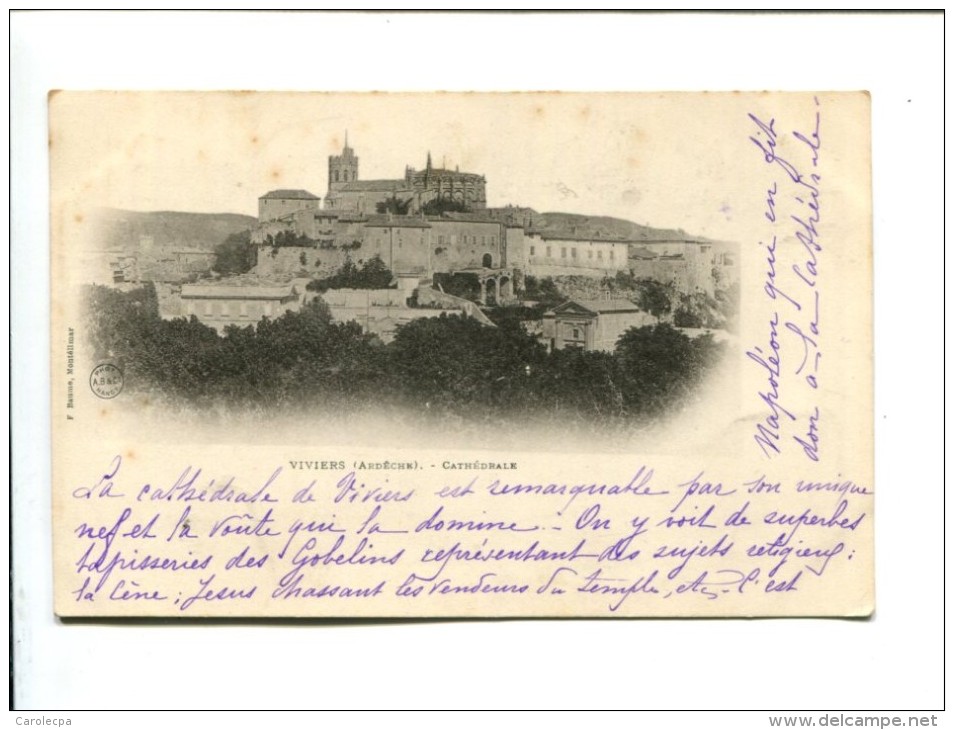 F Baume, Montélimar
PHOT
A.B & C
NANCY
VIVIERS (ARDÈCHE). - CATHÉDRALE
La cathédrale de Viviers est remarquable par son unique
nef et la voûte qui la domine. - On y voit de superbes
tapisseries des Gobelins représentant des sujets religieux :
la Cène ; Jesus chassant les vendeurs du temple, etc - C'est
Napoléon qui en fit
don à la Cathédrale -
Carolecpa
www.delcampe.net